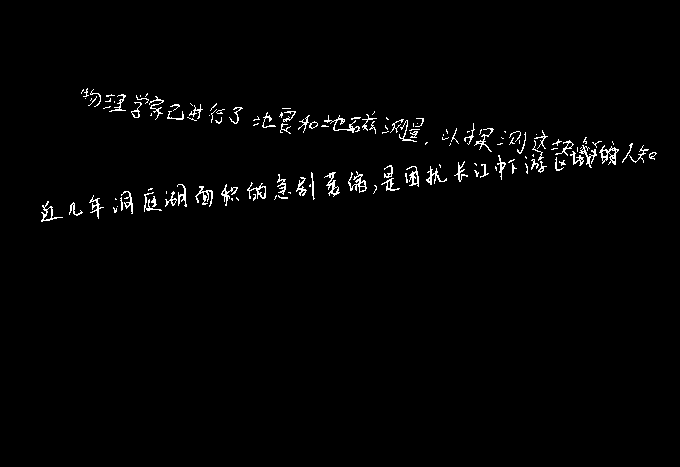 物理学家已进行了地震和地磁测量,以探测这
近几年洞庭湖面积的急剧萎缩,是困扰长江中下游区域的